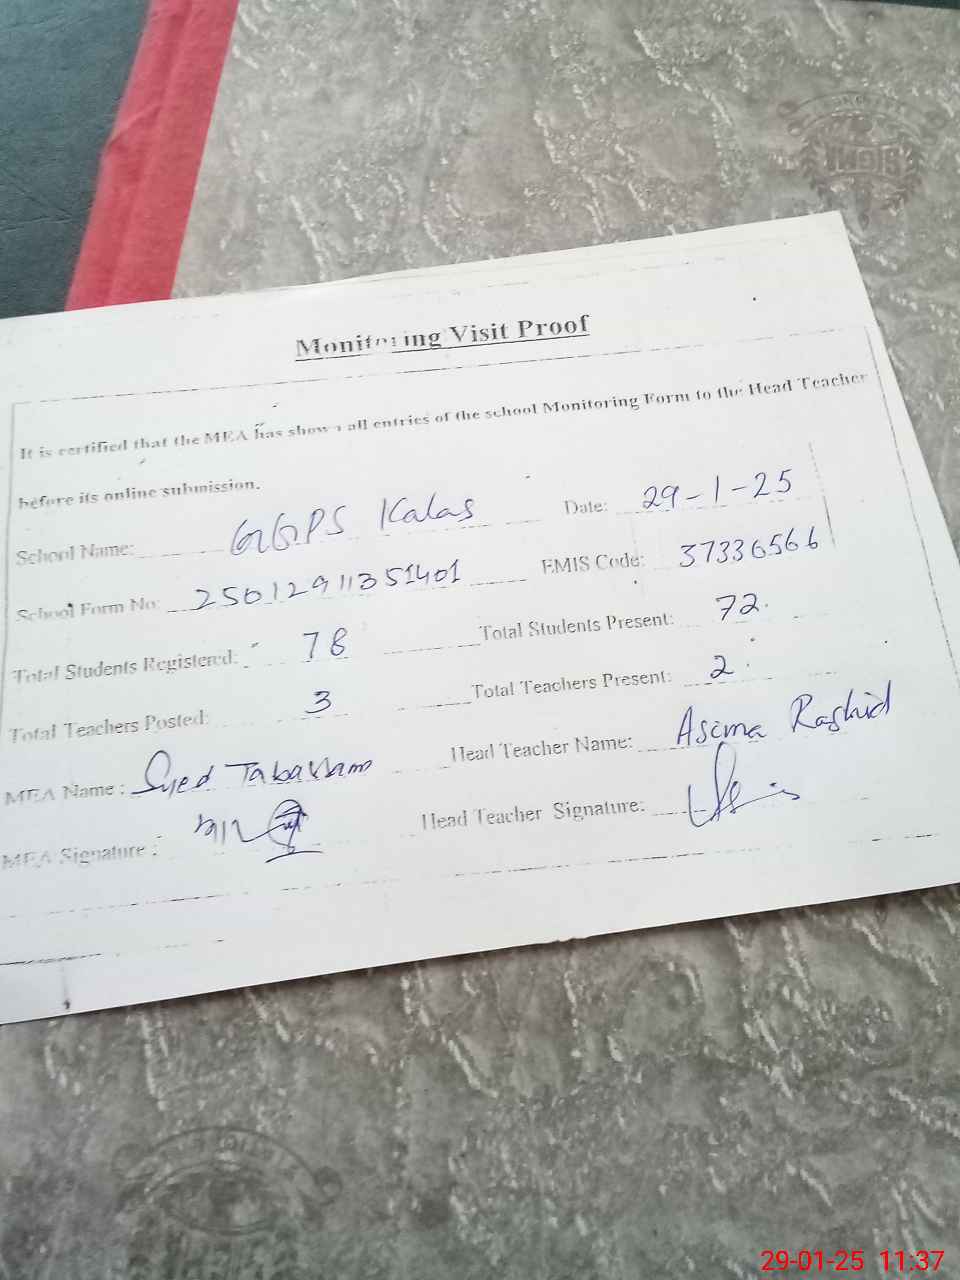 Monitoring Visit Proof
It is certified that the MEA has shown all entries of the school Monitoring Form to the Head Teacher
before its online submission.
School Name: GGPS Kalas Date: 29-1-25
School Form No: 25012911351401 EMIS Code: 37336566
Total Students Registered: 78 Total Students Present: 72
Total Teachers Posted: 3 Total Teachers Present: 2
MEA Name : Syed Tabassam Head Teacher Name: Asima Rashid
MEA Signature : Head Teacher Signature:
29-01-25 11:37